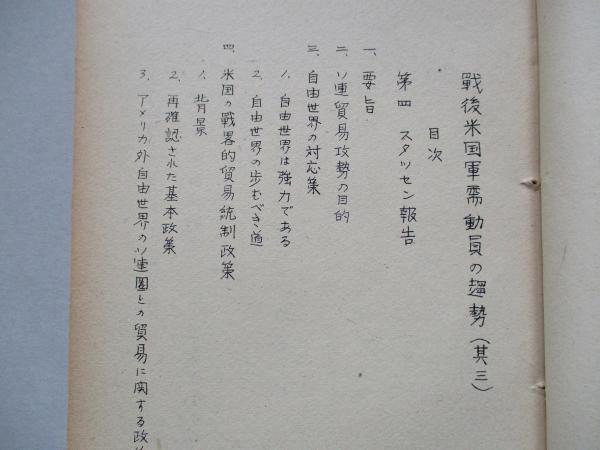 戰後米国軍需動員の趨勢(其三)
目次
第四 スタツセン報告
一、要旨
二、ソ連貿易攻勢の目的
三、自由世界の対応策
1. 自由世界は強力である
2. 自由世界の歩むべき道
四、米国の戰畧的貿易統制政策
1. 背景
2. 再確認された基本政策
3. アメリカ外自由世界のソ連圏との貿易に関する政